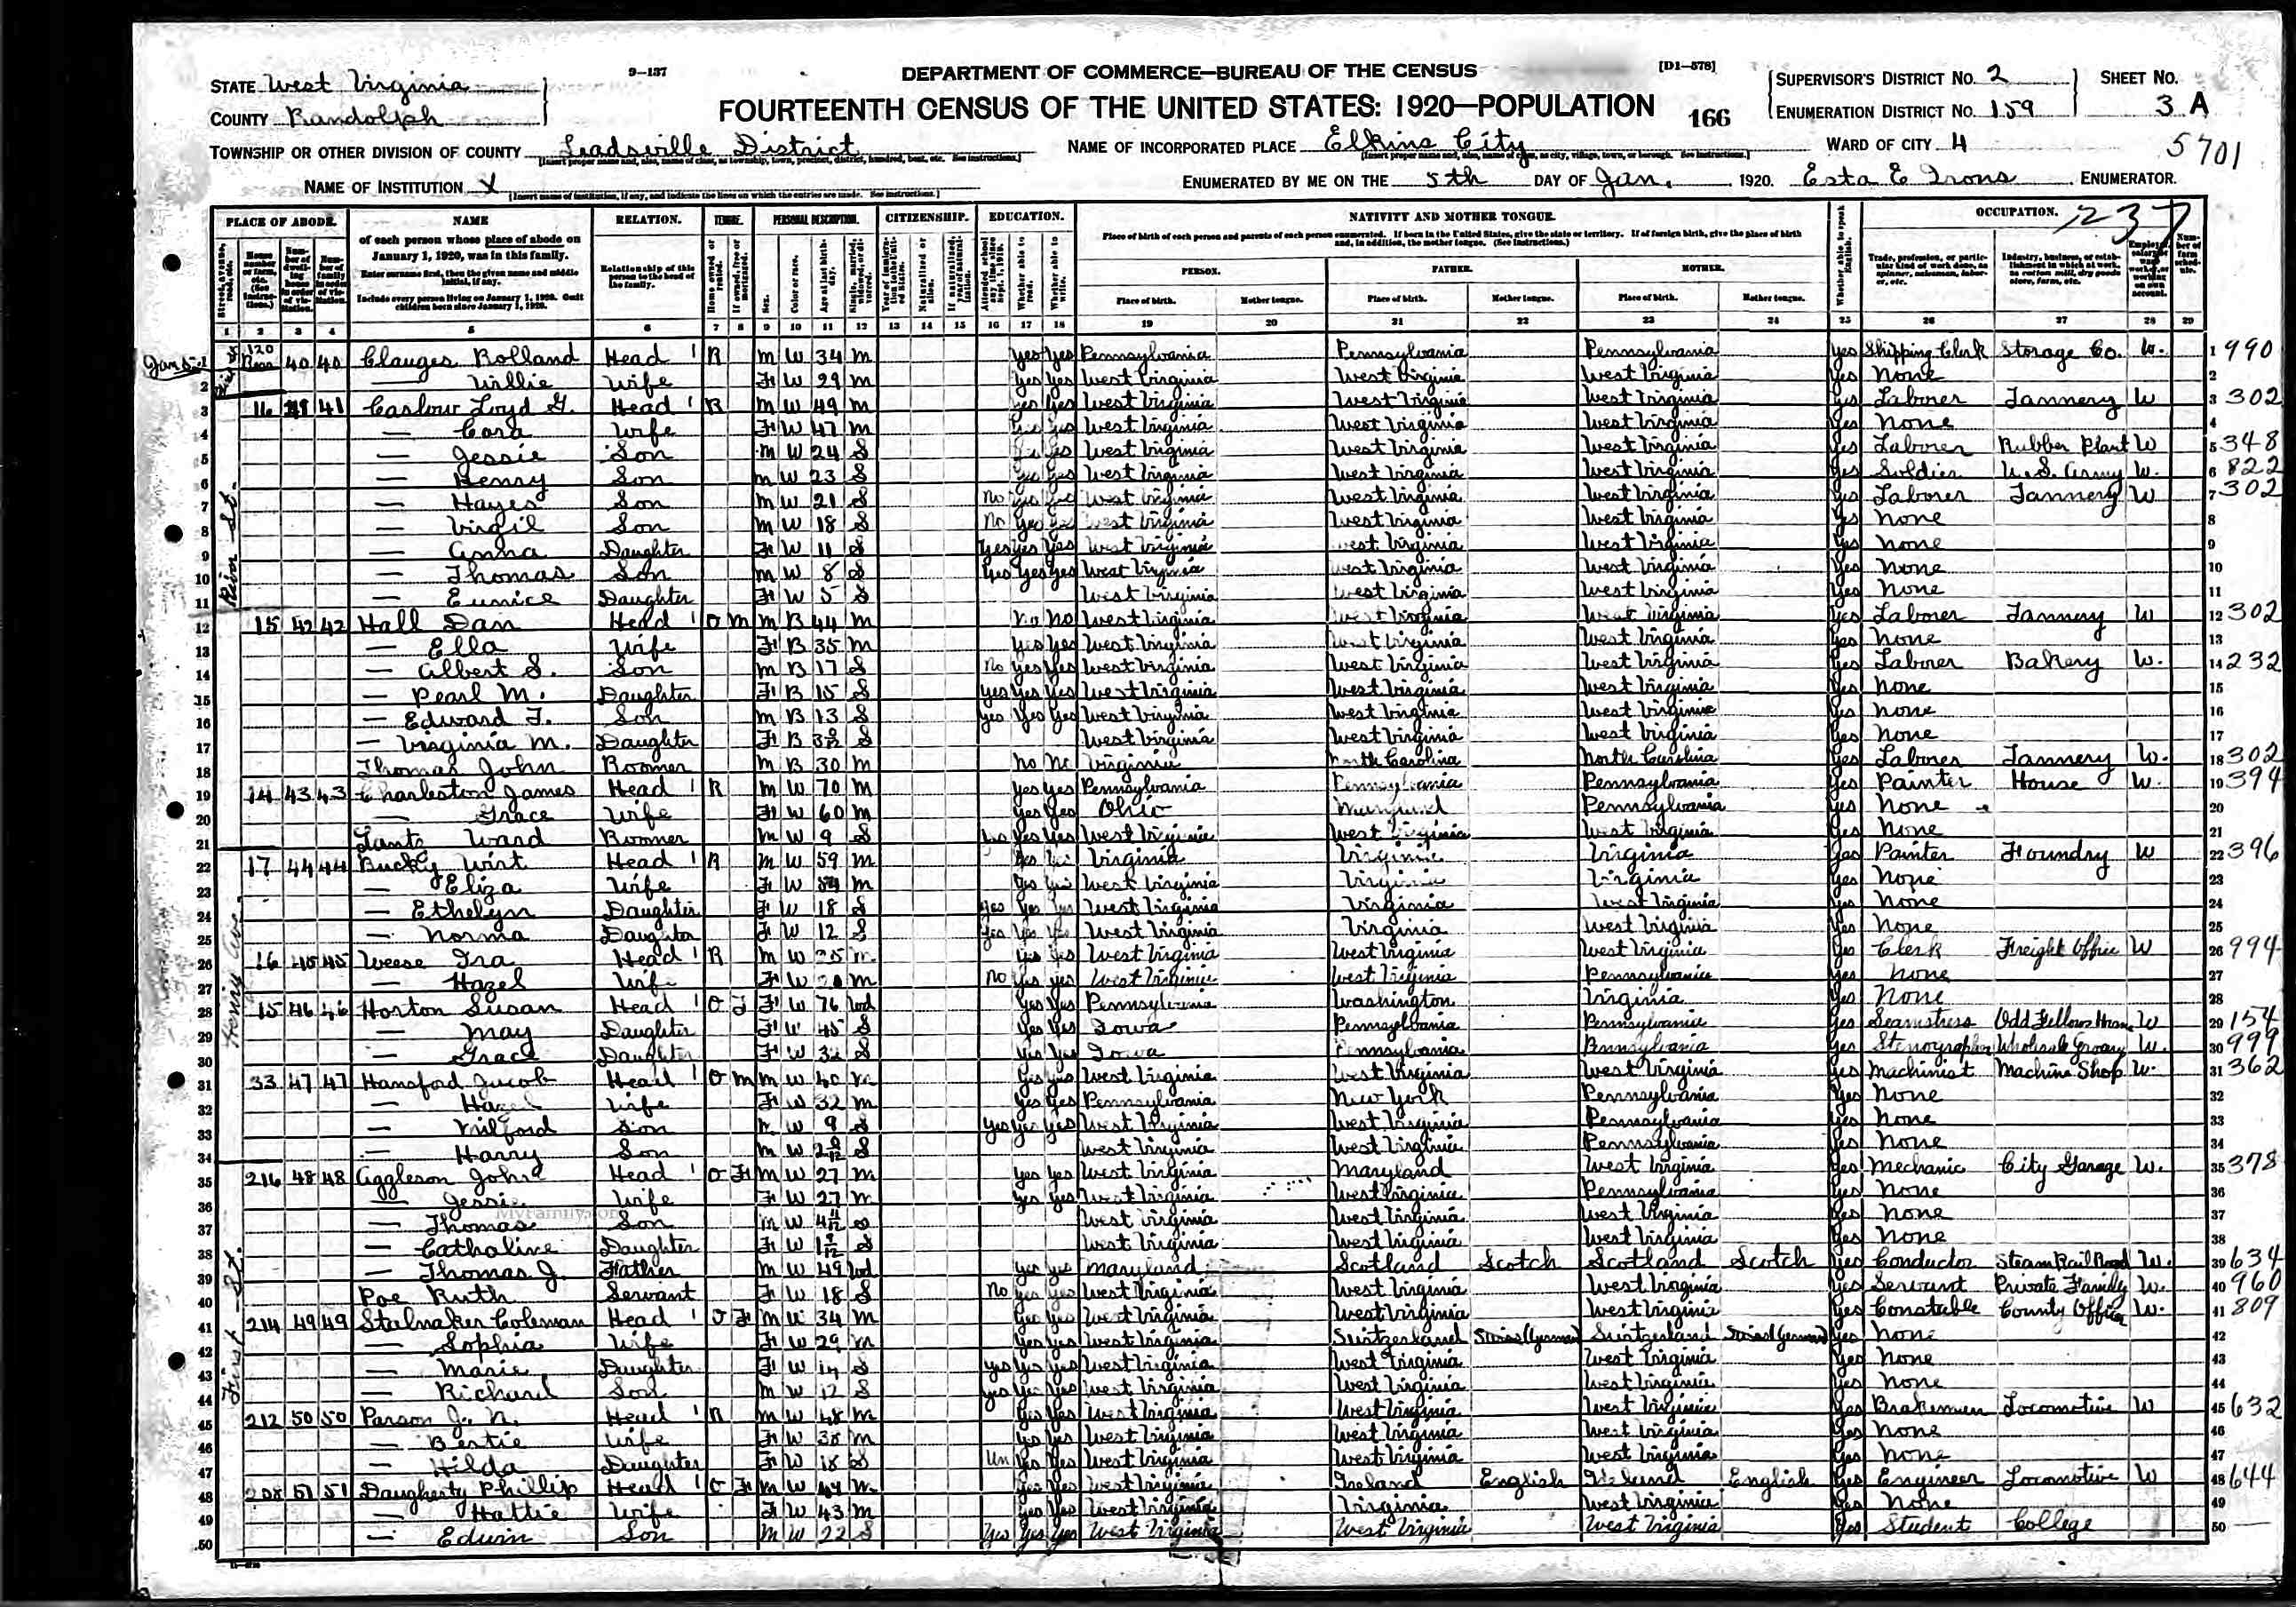 9-137
DEPARTMENT OF COMMERCE—BUREAU OF THE CENSUS
[D1-578]
STATE West Virginia
COUNTY Randolph
FOURTEENTH CENSUS OF THE UNITED STATES: 1920—POPULATION
166
SUPERVISOR'S DISTRICT No. 2
ENUMERATION DISTRICT No. 159
SHEET No.
3 A
TOWNSHIP OR OTHER DIVISION OF COUNTY Leadsville District
NAME OF INCORPORATED PLACE Elkins City
WARD OF CITY 4
5701
NAME OF INSTITUTION X
ENUMERATED BY ME ON THE 5th DAY OF Jan. 1920. Esta E Irons ENUMERATOR.
PLACE OF ABODE. NAME RELATION. TENURE. PERSONAL DESCRIPTION. CITIZENSHIP. EDUCATION. NATIVITY AND MOTHER TONGUE. OCCUPATION. 237
of each person whose place of abode on January 1, 1920, was in this family.
Enter surname first, then the given name and middle initial, if any.
Include every person living on January 1, 1920. Omit children born since January 1, 1920.
Relationship of this person to the head of the family.
PERSON. FATHER. MOTHER.
Place of birth. Mother tongue. Place of birth. Mother tongue. Place of birth. Mother tongue.
1 2 3 4 5 6 7 8 9 10 11 12 13 14 15 16 17 18 19 20 21 22 23 24 25 26 27 28 29
40 40 Clauges Rolland Head R M W 34 M Yes Yes Pennsylvania Pennsylvania Pennsylvania Yes Shipping Clerk Storage Co. W. 1 990
2 — Willie Wife F W 29 M Yes Yes West Virginia West Virginia West Virginia Yes None 2
3 16 41 41 Caslow Loyd G. Head R M W 49 M Yes Yes West Virginia West Virginia West Virginia Yes Laborer Tannery W 3 302
4 — Cora Wife F W 47 M Yes West Virginia West Virginia West Virginia Yes None 4
5 — Jessie Son M W 24 S Yes West Virginia West Virginia West Virginia Yes Laborer Rubber Plant W 5 348
6 — Henry Son M W 23 S Yes West Virginia West Virginia West Virginia Yes Soldier U.S. Army W. 6 822
7 — Hayes Son M W 21 S No Yes Yes West Virginia West Virginia West Virginia Yes Laborer Tannery W 7 302
8 — Virgil Son M W 18 S No Yes Yes West Virginia West Virginia West Virginia Yes None 8
9 — Anna Daughter F W 11 S Yes Yes Yes West Virginia West Virginia West Virginia Yes None 9
10 — Thomas Son M W 8 S Yes Yes Yes West Virginia West Virginia West Virginia Yes None 10
11 — Eunice Daughter F W 5 S West Virginia West Virginia West Virginia Yes None 11
12 15 42 42 Hall Dan Head O M M B 44 M No No West Virginia West Virginia West Virginia Yes Laborer Tannery W 12 302
13 — Ella Wife F B 35 M Yes Yes West Virginia West Virginia West Virginia Yes None 13
14 — Albert S. Son M B 17 S No Yes Yes West Virginia West Virginia West Virginia Yes Laborer Bakery W. 14 232
15 — Pearl M. Daughter F B 15 S Yes Yes Yes West Virginia West Virginia West Virginia Yes None 15
16 — Edward T. Son M B 13 S Yes Yes Yes West Virginia West Virginia West Virginia Yes None 16
17 — Virginia M. Daughter F B S West Virginia West Virginia West Virginia Yes None 17
18 Thomas John Roomer M B 30 M No No Virginia North Carolina North Carolina Yes Laborer Tannery W. 18 302
19 14 43 43 Charleston James Head R M W 70 M Yes Yes Pennsylvania Pennsylvania Pennsylvania Yes Painter House W. 19 394
20 — Grace Wife F W 60 M Yes Yes Ohio Maryland Pennsylvania Yes None 20
21 Ward Roomer M W 9 S Yes Yes West Virginia West Virginia West Virginia Yes None 21
22 17 44 44 Bucky Wirt Head R M W 59 M Yes Yes Virginia Virginia Virginia Yes Painter Foundry W 22 396
23 — Eliza Wife F W 54 M Yes Yes West Virginia Virginia Virginia Yes None 23
24 — Ethelyn Daughter F W 18 S Yes Yes Yes West Virginia Virginia West Virginia Yes None 24
25 — Norma Daughter F W 12 S Yes Yes Yes West Virginia Virginia West Virginia Yes None 25
26 16 45 45 Weese Ira Head R M W 25 M Yes Yes West Virginia West Virginia West Virginia Yes Clerk Freight Office W 26 994
27 — Hazel Wife F W 20 M No Yes Yes West Virginia West Virginia Pennsylvania Yes None 27
28 15 46 46 Horton Susan Head O F F W 76 Wd Yes Yes Pennsylvania Washington Virginia Yes None 28
29 — May Daughter F W 45 S Yes Yes Iowa Pennsylvania Pennsylvania Yes Seamstress Odd Fellows Home W 29 154
30 — Grace Daughter F W 32 S Yes Yes Iowa Pennsylvania Pennsylvania Yes Stenographer Wholesale Grocery W. 30 999
31 33 47 47 Hansford Jacob Head O M M W 40 M Yes Yes West Virginia West Virginia West Virginia Yes Machinist Machine Shop W. 31 362
32 — Hazel Wife F W 32 M Yes Yes Pennsylvania New York Pennsylvania Yes None 32
33 — Milford Son M W 9 S Yes Yes Yes West Virginia West Virginia Pennsylvania Yes None 33
34 — Harry Son M W S West Virginia West Virginia Pennsylvania Yes None 34
35 216 48 48 Aggleson John Head O F M W 27 M Yes Yes West Virginia Maryland West Virginia Yes Mechanic City Garage W. 35 378
36 — Jessie Wife F W 27 M Yes Yes West Virginia West Virginia Pennsylvania Yes None 36
37 — Thomas Son M W S West Virginia West Virginia West Virginia Yes None 37
38 — Catholine Daughter F W S West Virginia West Virginia West Virginia Yes None 38
39 — Thomas J. Father M W 49 Wd Yes Yes Maryland Scotland Scotch Scotland Scotch Yes Conductor Steam Rail Road W. 39 634
40 Poe Ruth Servant F W 18 S No Yes Yes West Virginia West Virginia West Virginia Yes Servant Private Family W. 40 960
41 214 49 49 Stalnaker Coleman Head O F M W 34 M Yes Yes West Virginia West Virginia West Virginia Yes Constable County Office W. 41 809
42 — Sophia Wife F W 29 M Yes Yes West Virginia Switzerland Swiss (German) Switzerland Swiss (German) Yes None 42
43 — Marie Daughter F W 14 S Yes Yes Yes West Virginia West Virginia West Virginia Yes None 43
44 — Richard Son M W 12 S Yes Yes Yes West Virginia West Virginia West Virginia Yes None 44
45 212 50 50 Parson J. N. Head R M W 48 M Yes Yes West Virginia West Virginia West Virginia Yes Brakeman Locomotive W 45 632
46 — Bertie Wife F W 38 M Yes Yes West Virginia West Virginia West Virginia Yes None 46
47 — Hilda Daughter F W 18 S Un Yes Yes West Virginia West Virginia West Virginia Yes None 47
48 208 51 51 Daugherty Phillip Head O F M W 44 M Yes Yes West Virginia Ireland English Ireland English Yes Engineer Locomotive W 48 644
49 — Hattie Wife F W 43 M Yes Yes West Virginia Virginia West Virginia Yes None 49
50 — Edwin Son M W 22 S Yes Yes Yes West Virginia West Virginia West Virginia Yes Student College 50
River St.
Henry Av.
First St.